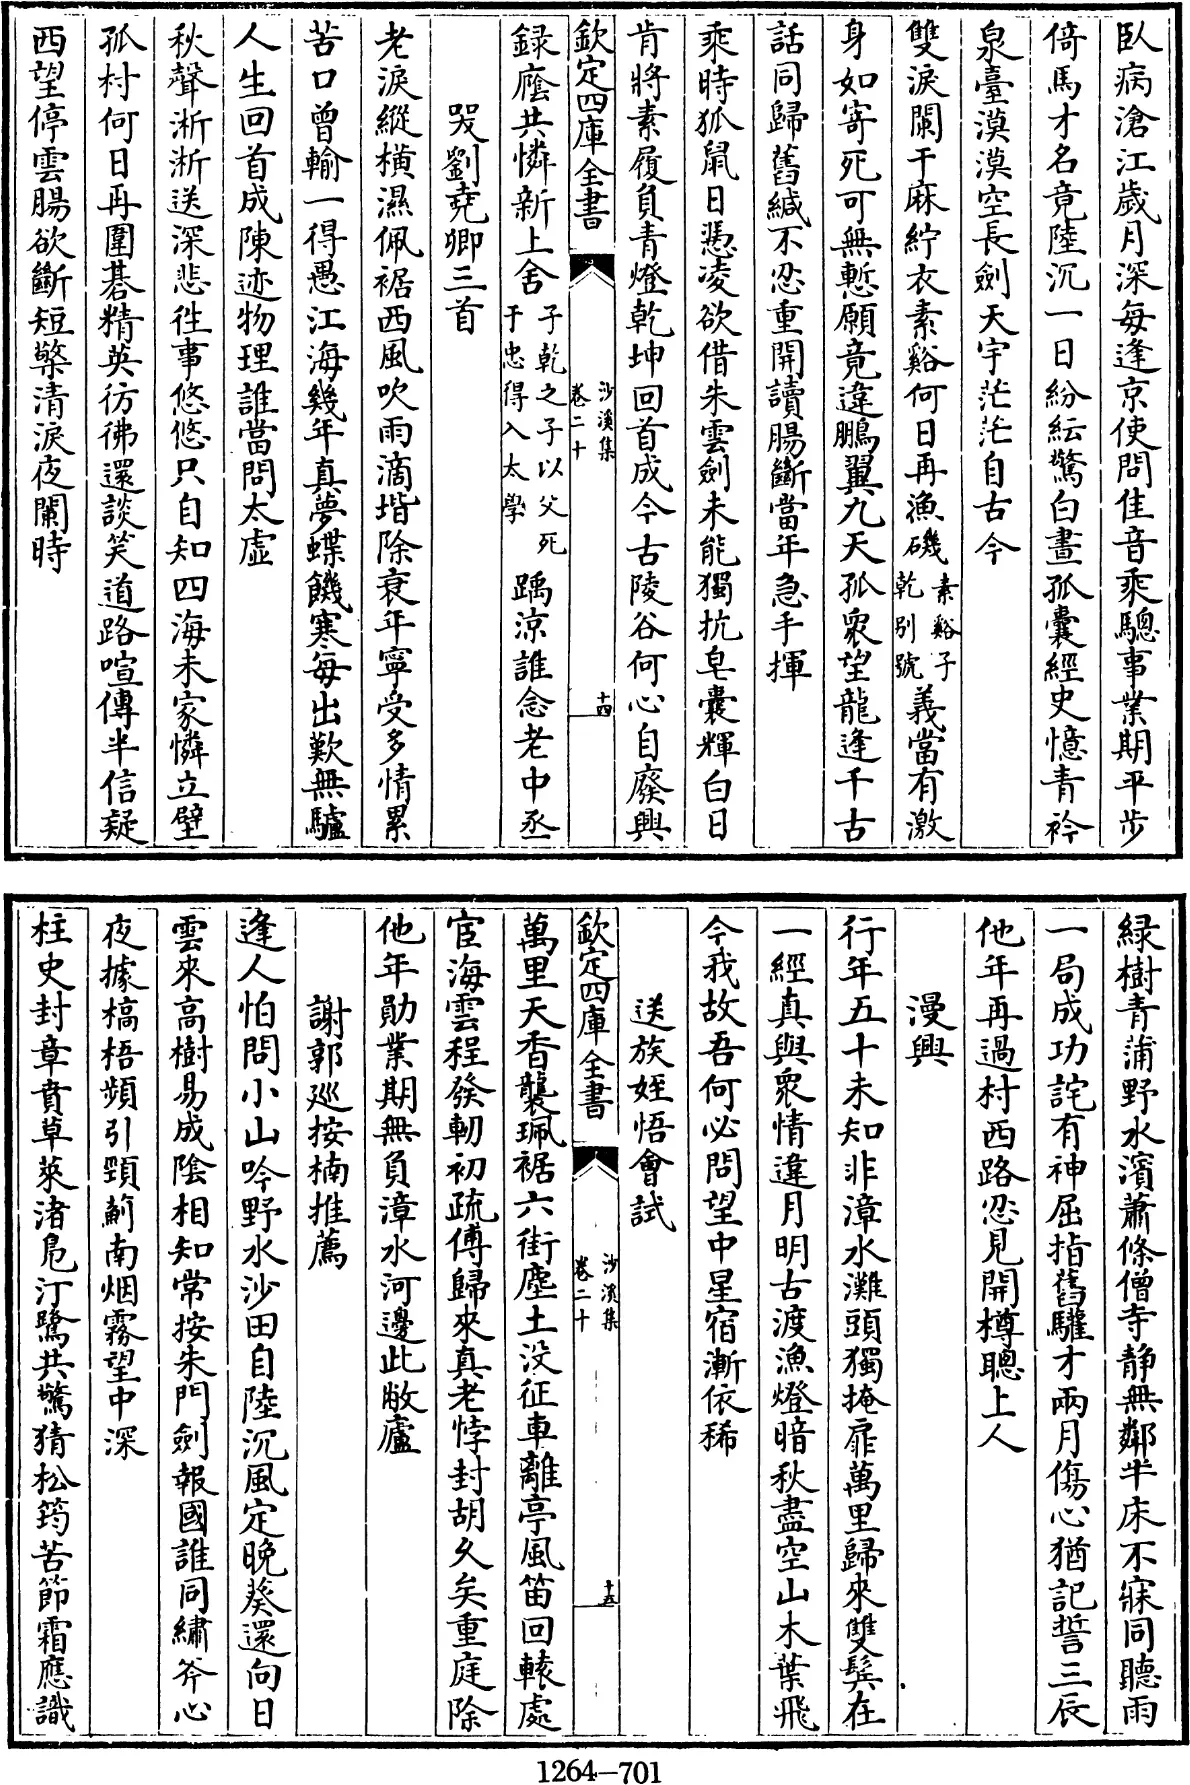 臥病滄江歳月深每逢京使問佳音乘驄事業期平步
倚馬才名竟陸沉一日紛紜驚白晝孤囊經史憶青衿
泉臺漠漠空長劍天宇茫茫自古今
雙淚闌干麻紵衣素谿何日再漁磯素谿子乾别號義當有激
身如寄死可無慙願竟違鵬翼九天孤衆望龍逢千古
話同歸舊緘不忍重開讀腸斷當年急手揮
乘時狐鼠日憑凌欲借朱雲劍未能獨抗皂囊輝白日
肯將素履負青燈乾坤回首成今古陵谷何心自廢興
欽定四庫全書
沙溪集
卷二十
十四
録廕共憐新上舍子乾之子以父死于忠得入太學踽涼誰念老中丞
哭劉堯卿三首
老淚縱横濕佩裾西風吹雨滴堦除衰年寧受多情累
苦口曾輸一得愚江海幾年真夢蝶饑寒每出歎無驢
人生回首成陳迹物理誰當問太虚
秋聲淅淅送深悲往事悠悠只自知四海未家憐立壁
孤村何日再圍棊精英彷彿還談笑道路喧傳半信疑
西望停雲腸欲斷短檠清淚夜闌時
緑樹青蒲野水濱蕭條僧寺静無鄰半床不寐同聽雨
一局成功詫有神屈指舊驩才兩月傷心猶記誓三辰
他年再過村西路忍見開樽聰上人
漫興
行年五十未知非漳水灘頭獨掩扉萬里歸來雙鬓在
一經真與衆情違月明古渡漁燈暗秋盡空山木葉飛
今我故吾何必問望中星宿漸依稀
送族姪悟會試
欽定四庫全書
沙溪集
卷二十
十五
萬里天香襲珮裾六街塵土没征車離亭風笛回轅處
宦海雲程發軔初疏傅歸來真老悖封胡久矣重庭除
他年勛業期無負漳水河邊此敝廬
謝郭廵按楠推薦
逢人怕問小山吟野水沙田自陸沉風定晚葵還向日
雲來高樹易成陰相知常按朱門劍報國誰同繡斧心
夜據槁梧頻引頸薊南烟霧望中深
柱史封章賁草萊渚鳬汀鷺共驚猜松筠苦節霜應識
1264—701